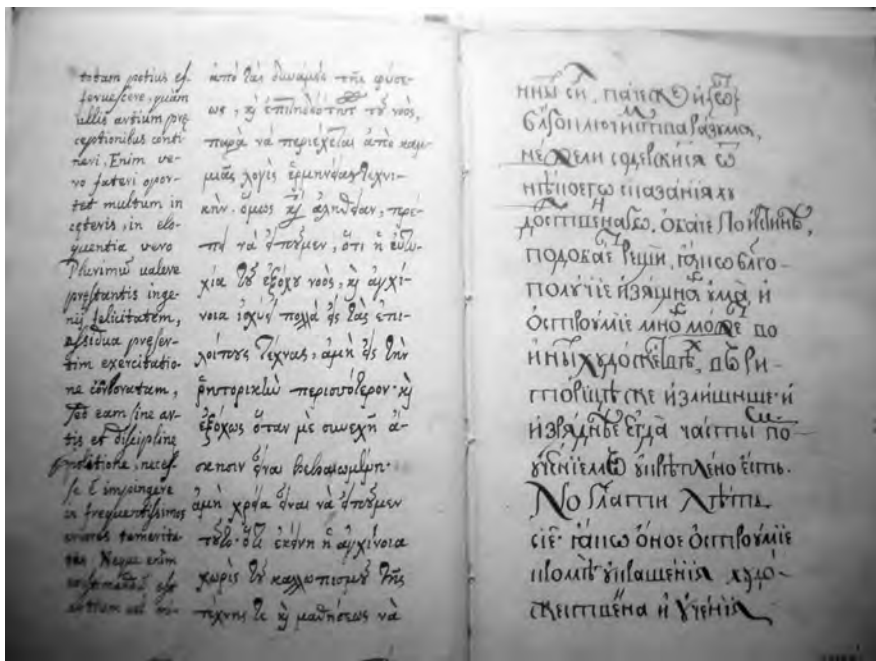 totam potius ef-
fervescere, quàm
ullis artium præ
ceptionibus conti
neri. Enim ve-
ro fateri opor-
tet multum in
cęteris, in elo-
quentia vero
Plurimũ valere
pręstantis inge-
nij felicitatem,
assidua preser-
tim exercitatio-
ne
sed eam sine ar-
tis et discipline
politione, neces-
se ē impingere
in frequentissimos
errores temerita-
tis. Neque enim
est
artium vel mi-
ἀπὸ ταῖς δυνάμες τῆς φύσε-
ως, κỳ ἐπιτηδειότητ τοῦ νοός,
παρὰ νὰ περιέχεται ἀπὸ καμ-
μιᾶς λογῆς ἑρμηνείας τεχνι-
κήν. ὅμως κỳ ἀλήθειαν, πρέ-
πει νὰ εἰποῦμεν, ὅτι ἡ εὐτυ-
χία τοῦ ἐξόχου νοός, κỳ ἀγχί-
νοια ἰσχύει πολλὰ εἰς τὰς ἐπι-
λοίπους τέχνας, ἀμὴ εἰς τὴν
ῥητορικὴν περισσότερον· κỳ
ἐξόχως ὅταν μὲ συνεχῆ ἄ-
σκησιν εἶναι
ἀμὴ χρεία εἶναι νὰ εἰποῦμεν
τοῦτο· ὅτι ἐκείνη ἡ ἀγχίνοια
χωρὶς τοῦ καλλωπισμοῦ τῆς
τέχνης τε κỳ μαθήσεως νὰ
ннѡ́ си, паче и
разꙋма,
нежели содержися ѿ
нѣкоегѡ сказанїя хꙋ
обаче по и́стинѣ,
подобае рещи, ꙗ́кѡ бл҃го-
полꙋ́чїе изѧ́щна ᲂу҆ма̀, и
ѻстроꙋ́мїе мно може во
ины́ хꙋдожествѣ, въ ри-
торицѣ же излишнше· и
изрѧ́днѣе егда̀ части по-
ᲂу҆че́нїемъ ᲂу҆крѣплено е҆сть.
Но гл҃ати лѣть
сїѐ· ꙗ́кѡ ѻ҆ное ѻстроꙋ́мїе
кромѣ ᲂу҆краше́нїѧ хꙋдо-
жествена и ᲂу҆че́нїѧ